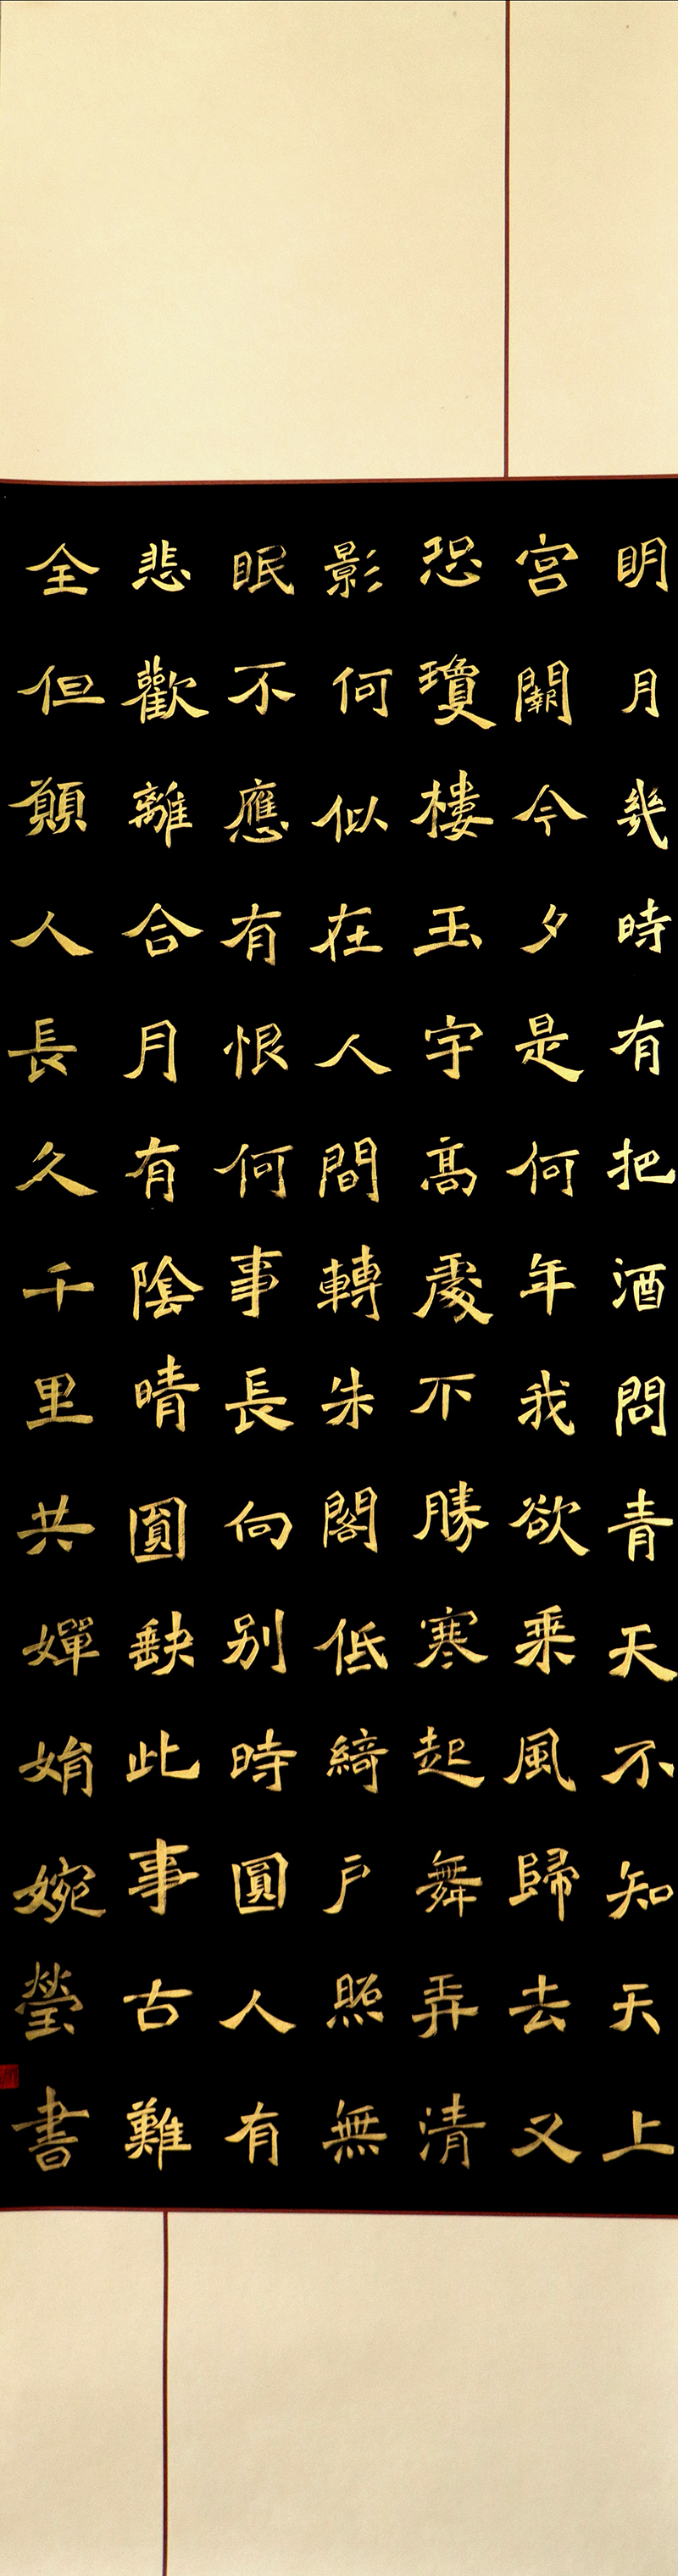 明月幾時有把酒問青天不知天上
宮闕今夕是何年我欲乘風歸去又
恐瓊樓玉宇高處不勝寒起舞弄清
影何似在人間轉朱閣低綺戶照無
眠不應有恨何事長向別時圓人有
悲歡離合月有陰晴圓缺此事古難
全但願人長久千里共嬋娟婉瑩書